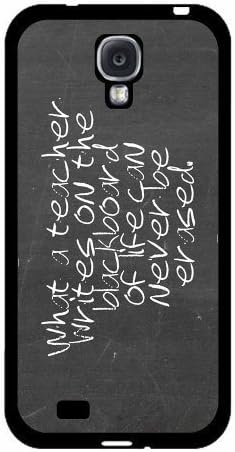 What a teacher
writes on the
blackboard
of life can
never be
erased.